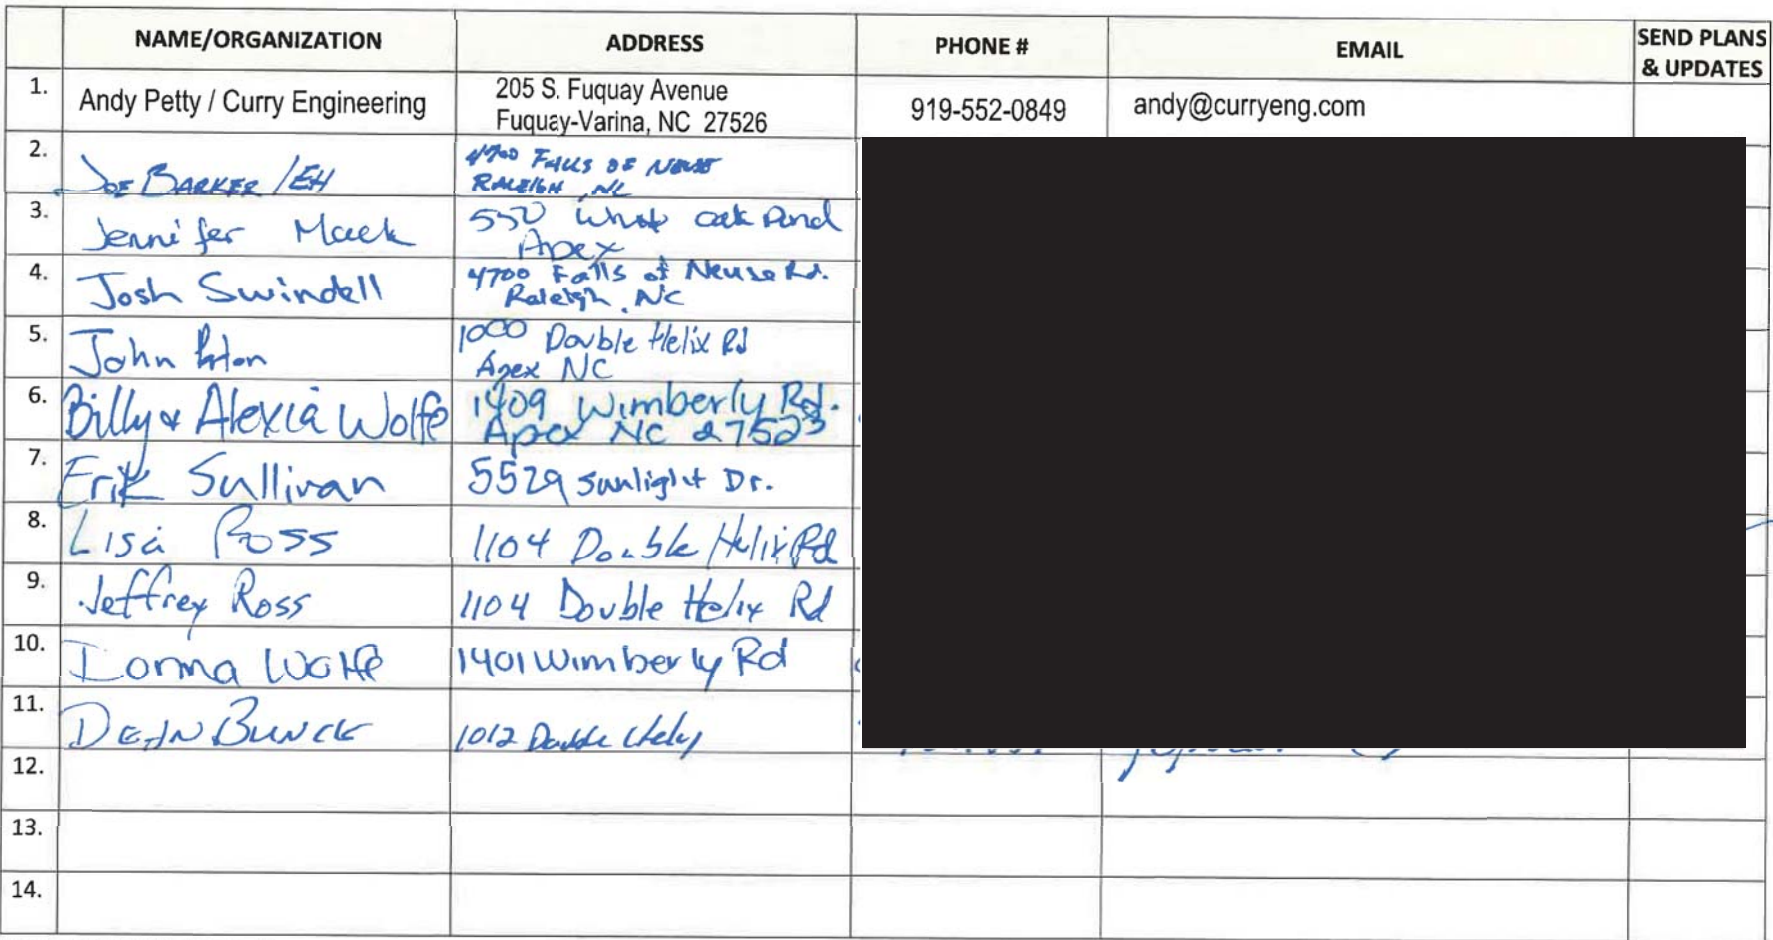 NAME/ORGANIZATION ADDRESS PHONE # EMAIL SEND PLANS & UPDATES
1. Andy Petty / Curry Engineering 205 S. Fuquay Avenue 919-552-0849 andy@curryeng.com
Fuquay-Varina, NC 27526
2. JOE BARKER / EH 4700 FALLS OF NEUSE
RALEIGH, NC
3. Jennifer Mack 550 White oak Pond
Apex
4. Josh Swindell 4700 Falls of Neuse Rd.
Raleigh, NC
5. John 1000 Double Helix Rd
Apex NC
6. Billy & Alexia Wolfe 1409 Wimberly Rd.
Apex NC 27523
7. Erik Sullivan 5529 Sunlight Dr.
8. Lisa Ross 1104 Double Helix Rd
9. Jeffrey Ross 1104 Double Helix Rd
10. Lorma Wolfe 1401 Wimberly Rd
11. DEAN BUNCK 1012 Double
12.
13.
14.